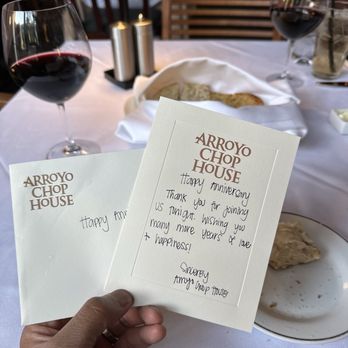 ARROYO
CHOP
HOUSE
Happy Anniversary
Thank you for joining
us tonight. Wishing you
many more years of love
+ happiness!
Sincerely
Arroyo Chop House
ARROYO
CHOP
HOUSE
Happy Ann